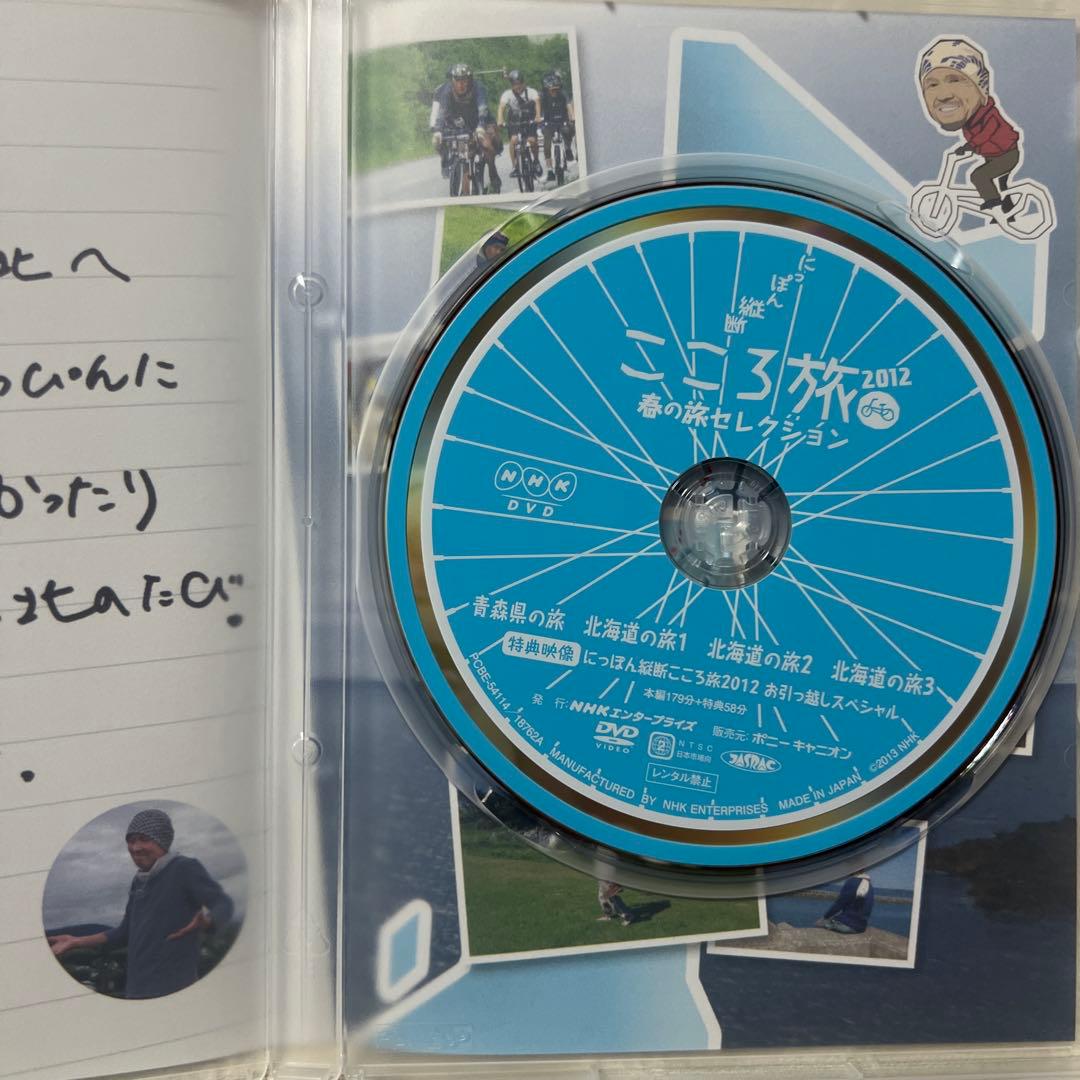 北へ
っぴんに
かったり
北のたび
にっぽん
縦断
こころ旅 2012
春の旅セレクション
NHK
DVD
青森県の旅 北海道の旅1 北海道の旅2 北海道の旅3
特典映像 にっぽん縦断こころ旅2012 お引っ越しスペシャル
本編179分+特典58分
発 行:NHKエンタープライズ 販売元:ポニーキャニオン
DVD VIDEO 2 NTSC 日本市場向 JASRAC
レンタル禁止
PCBE-54114 / 18762A MANUFACTURED BY NHK ENTERPRISES MADE IN JAPAN ©2013 NHK